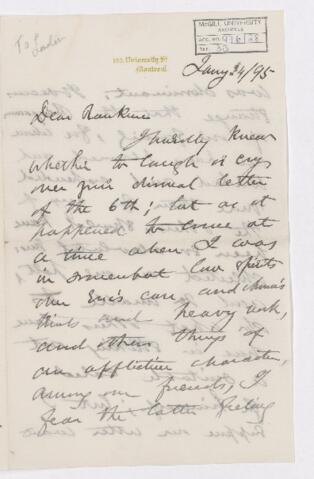 To Ladies
McGILL UNIVERSITY
ARCHIVES
ACC. NO.
REF. 30
University St
Montreal.
Jany 24/95
Dear Rankine
I hardly knew
whether to laugh or cry
over your dismal letter
of the 6th; but as it
happened to come at
a time when I was
in somewhat low spirits
over care, and Anna's
and heavy work,
and other things of
an afflictive character,
among our friends, I
fear the latter feeling